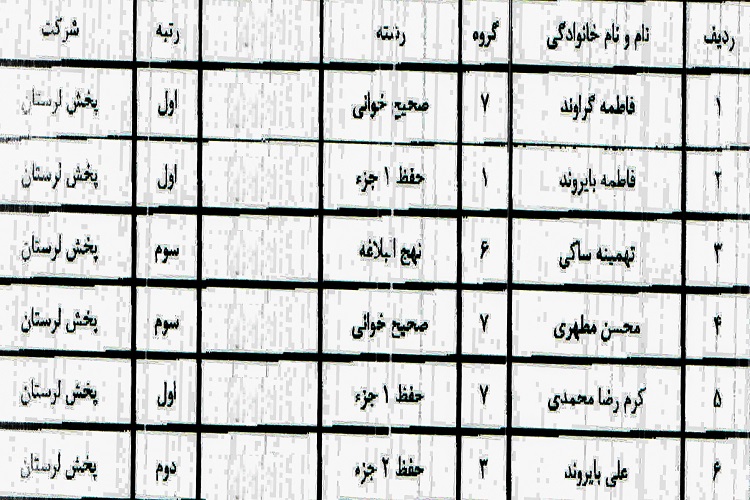 ردیف نام و نام خانوادگی گروه رشته رتبه شرکت
۱ فاطمه گراوند ۷ صحیح خوانی اول پخش لرستان
۲ فاطمه بایروند ۱ حفظ ۱ جزء اول پخش لرستان
۳ تهمینه ساکی ۶ نهج البلاغه سوم پخش لرستان
۴ محسن مطهری ۷ صحیح خوانی سوم پخش لرستان
۵ کرم رضا محمدی ۷ حفظ ۱ جزء اول پخش لرستان
۶ علی بایروند ۳ حفظ ۲ جزء دوم پخش لرستان